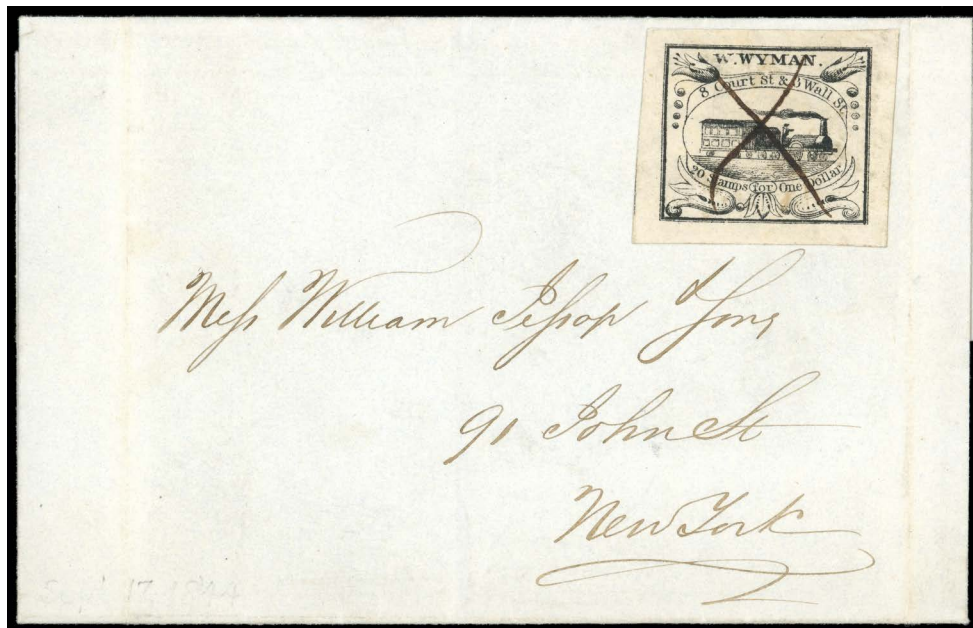 W. WYMAN.
8 Court St & 3 Wall St.
20 Stamps for One Dollar
Mess William Jessop & Sons
91 John St
New York
17 1844